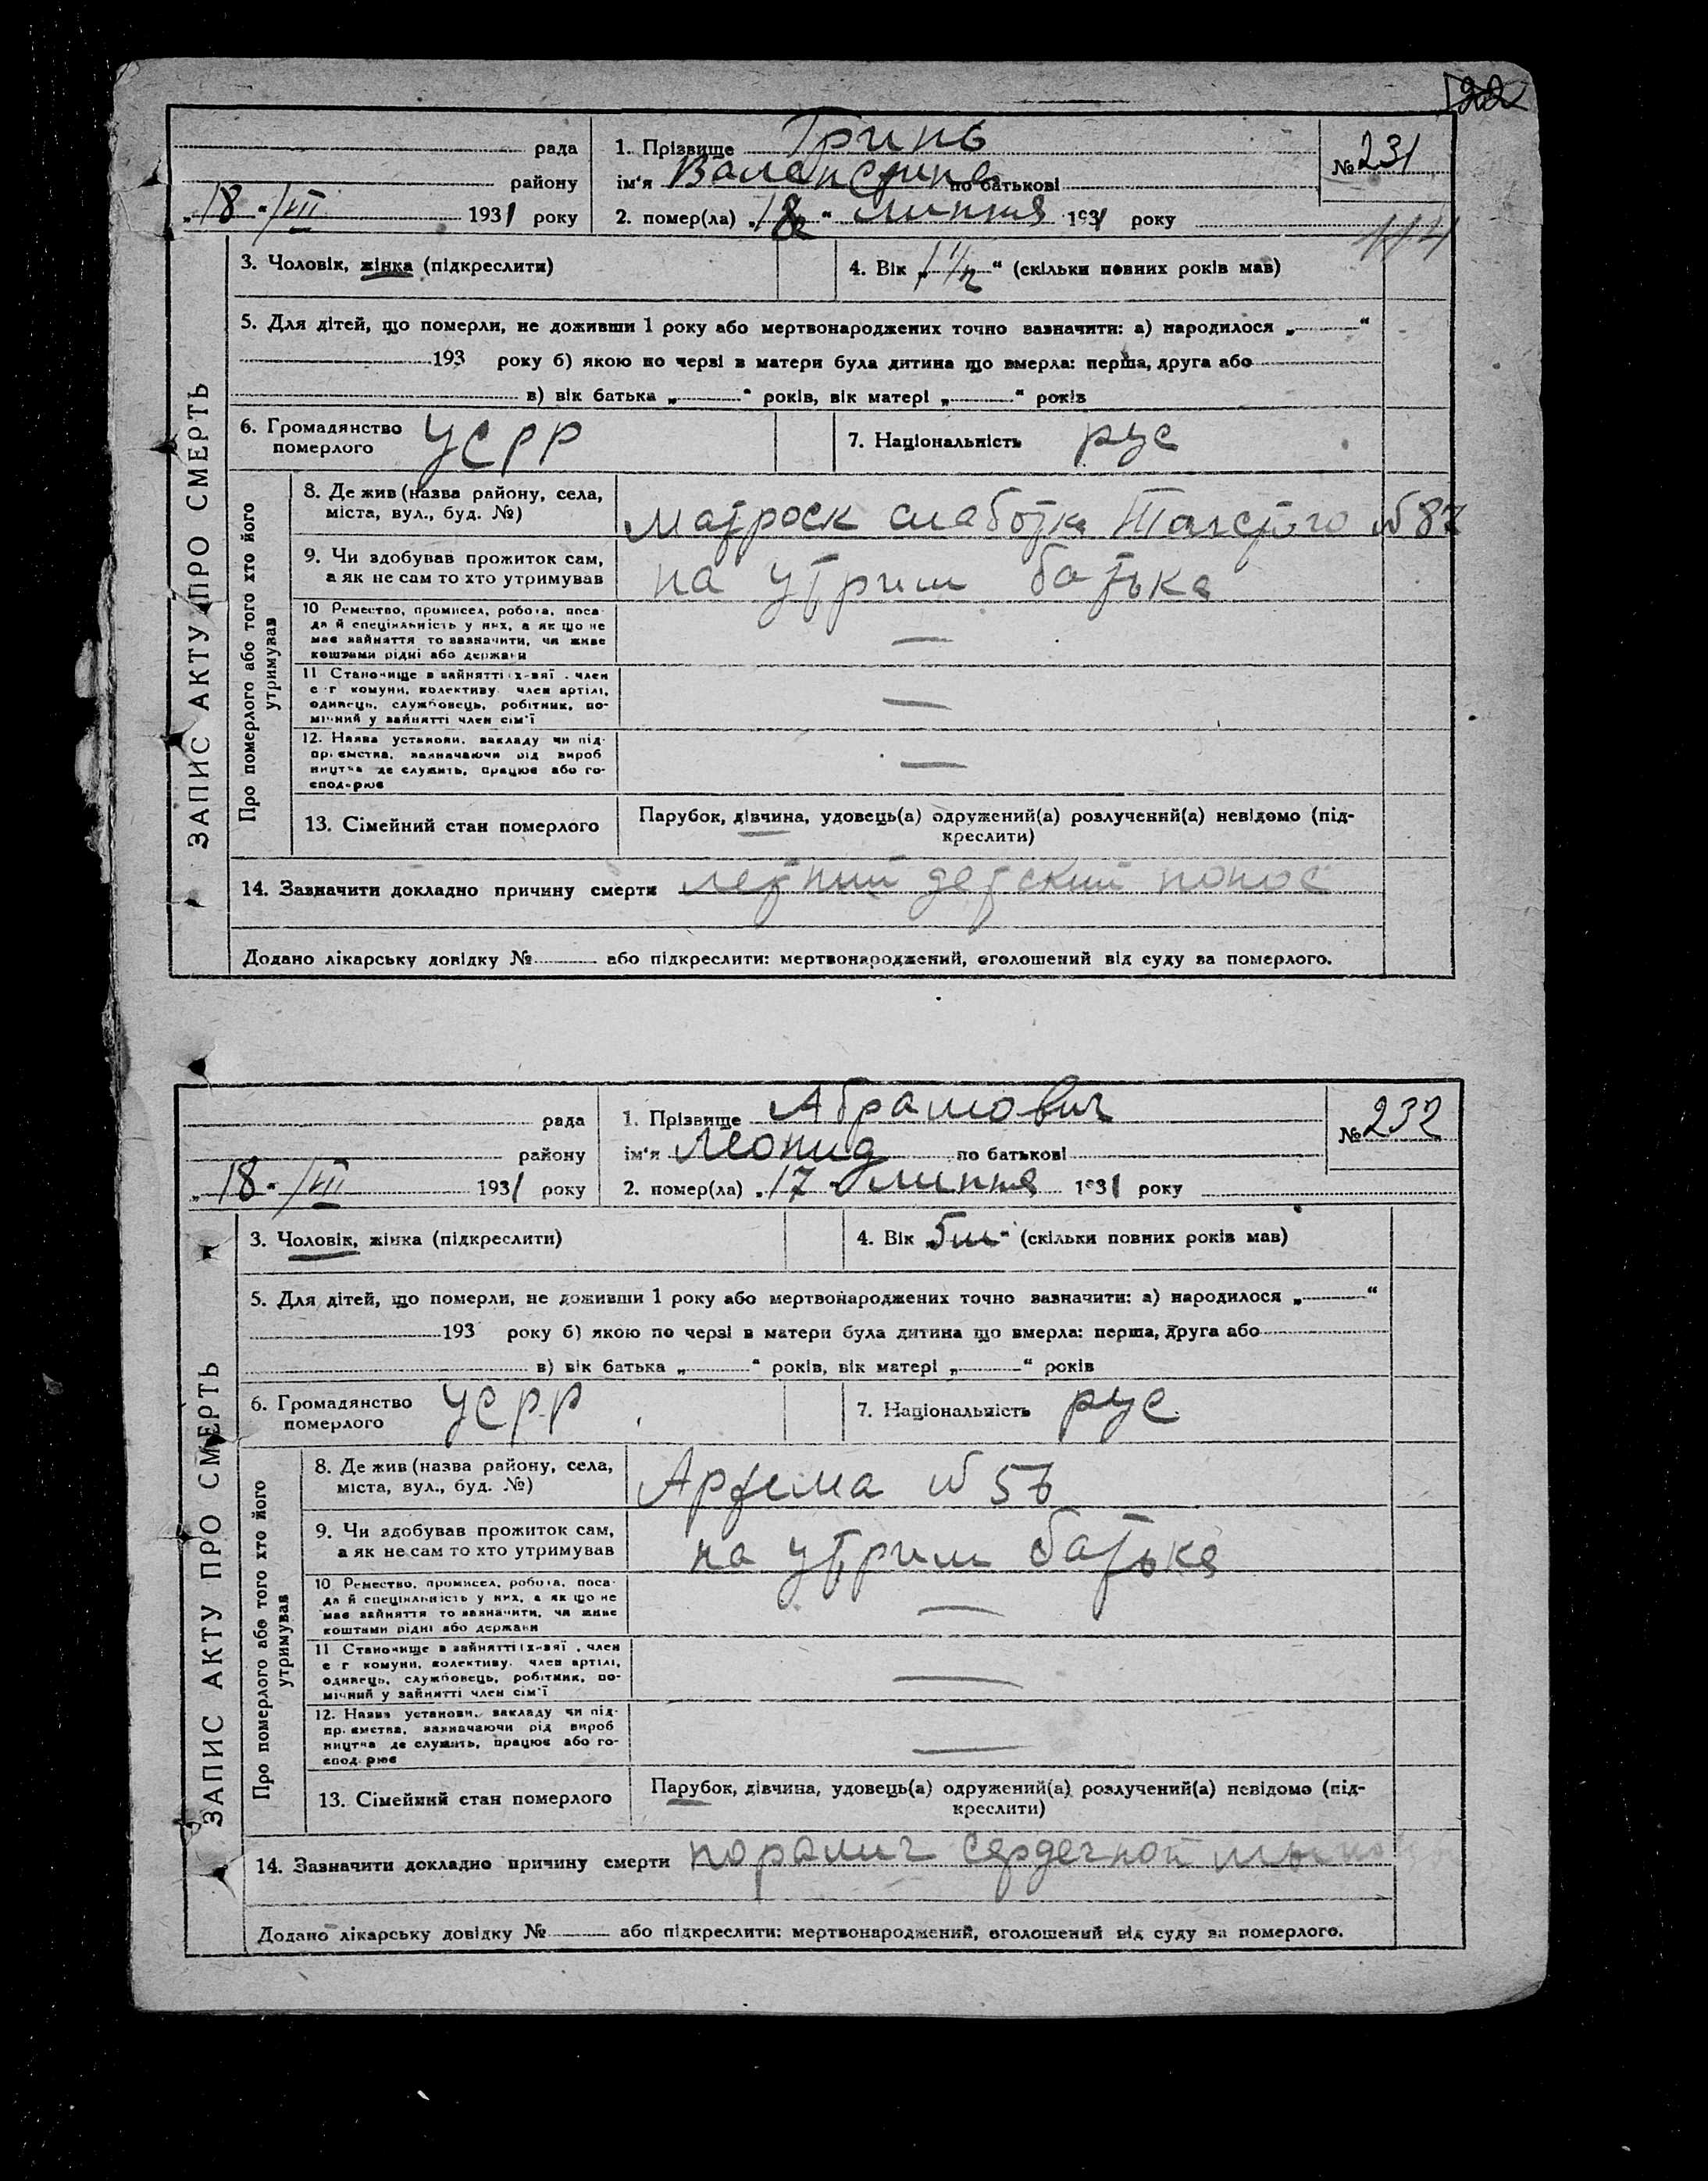 рада
району
„18“ /VII 1931 року
1. Прізвище Гринь
ім'я Валентина по батькові
2. помер(ла) „18“ липня 1931 року
№ 231
114
ЗАПИС АКТУ ПРО СМЕРТЬ
3. Чоловік, жінка (підкреслити)
4. Вік „1 1/2“ (скільки повних років мав)
5. Для дітей, що померли, не доживши 1 року або мертвонароджених точно зазначити: а) народилося „ “
193 року б) якою по черзі в матери була дитина що вмерла: перша, друга або
в) вік батька „ “ років, вік матері „ “ років
6. Громадянство
померлого
УСРР
7. Національність рус
Про померлого або того хто його
утримував
8. Де жив (назва району, села,
міста, вул., буд. №)
Матроск слаботка Толстого № 87
9. Чи здобував прожиток сам,
а як не сам то хто утримував
на утрим батька
10 Ремество, промисел, робота, поса-
да й спеціяльність у них, а як що не
має зайняття то зазначити, чи живе
коштами рідні або держави
—
11 Становище в зайнятті х-вяї . член
с г комуни, колективу член артілі,
одинець, службовець, робітник, по-
мічний у зайнятті член сім'ї
—
12. Назва установи, закладу чи під-
пр.ємства, зазначаючи рід вироб
ництва де служить, працює або го-
спод-рює
—
13. Сімейний стан померлого
Парубок, дівчина, удовець(а) одружений(а) розлучений(а) невідомо (під-
креслити)
14. Зазначити докладно причину смерти летний детский понос
Додано лікарську довідку № або підкреслити: мертвонароджений, оголошений від суду за померлого.
рада
району
„18“ /VII 1931 року
1. Прізвище Абрамович
ім'я Леонид по батькові
2. помер(ла) „17“ липня 1931 року
№ 232
ЗАПИС АКТУ ПРО СМЕРТЬ
3. Чоловік, жінка (підкреслити)
4. Вік „5 м“ (скільки повних років мав)
5. Для дітей, що померли, не доживши 1 року або мертвонароджених точно зазначити: а) народилося „ “
193 року б) якою по черзі в матери була дитина що вмерла: перша, друга або
в) вік батька „ “ років, вік матері „ “ років
6. Громадянство
померлого
УСРР
7. Національність рус
Про померлого або того хто його
утримував
8. Де жив (назва району, села,
міста, вул., буд. №)
Артема №
9. Чи здобував прожиток сам,
а як не сам то хто утримував
на утрим батька
10 Ремество, промисел, робота, поса-
да й спеціяльність у них, а як що не
має зайняття то зазначити, чи живе
коштами рідні або держави
—
11 Становище в зайнятті х-вяї . член
с г комуни, колективу член артілі,
одинець, службовець, робітник, по-
мічний у зайнятті член сім'ї
—
12. Назва установи, закладу чи під-
пр.ємства, зазначаючи рід вироб
ництва де служить, працює або го-
спод рює
—
13. Сімейний стан померлого
Парубок, дівчина, удовець(а) одружений(а) розлучений(а) невідомо (під-
креслити)
14. Зазначити докладно причину смерти поралич сердечной
Додано лікарську довідку № або підкреслити: мертвонароджений, оголошений від суду за померлого.